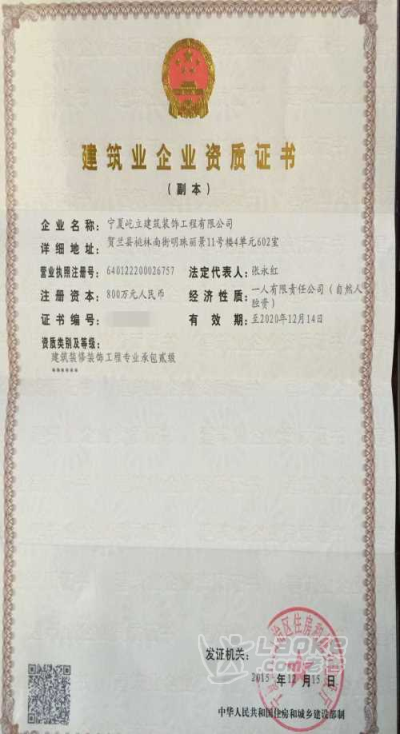 建筑业企业资质证书
（副本）
企业名称：宁夏屹立建筑装饰工程有限公司
详细地址：贺兰县桃林南街明珠丽景11号楼4单元602室
营业执照注册号：640122200026757 法定代表人：张永红
注册资本：800万元人民币 经济性质：一人有限责任公司（自然人
独资）
证书编号： 有效期：至2020年12月14日
资质类别及等级：
建筑装修装饰工程专业承包贰级
******
发证机关：
2015年12月15日
中华人民共和国住房和城乡建设部制